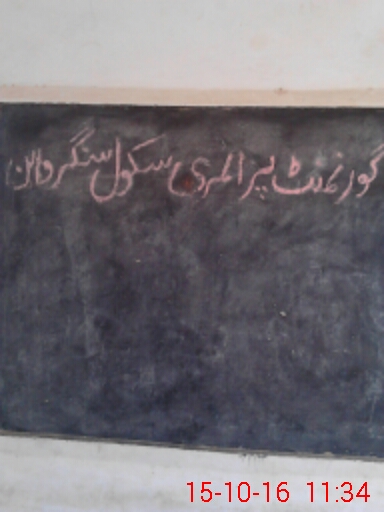 گورنمنٹ پرائمری سکول سنگروائن
15-10-16 11:34